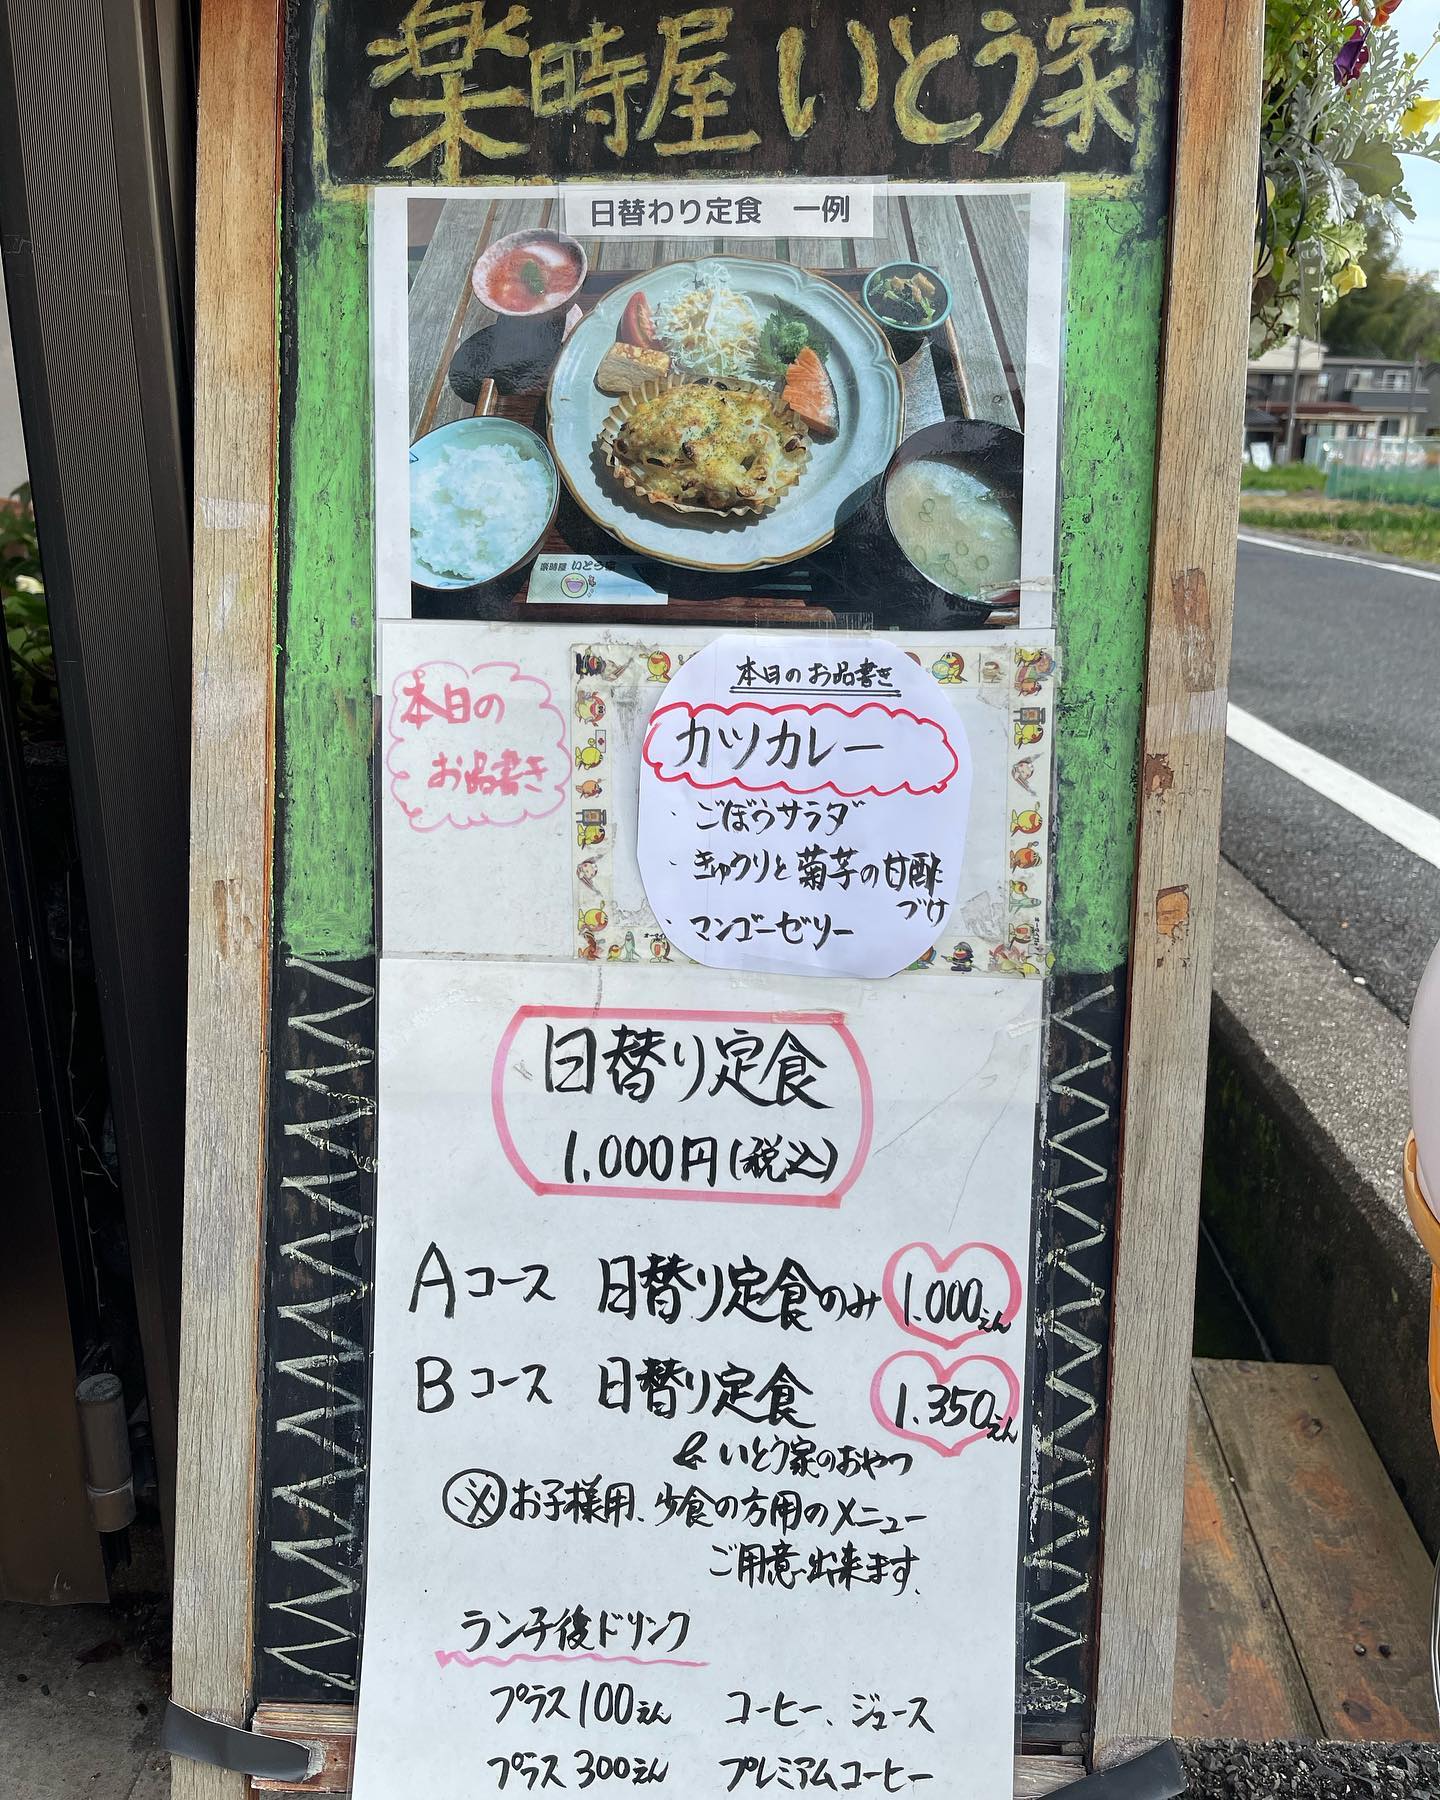 楽時屋 いとう家
日替わり定食 一例
楽時屋 いとう家
本日の
お品書き
本日のお品書き
カツカレー
・ごぼうサラダ
・きゅうりと菊芋の甘酢
づけ
・マンゴーゼリー
日替り定食
1.000円(税込)
Aコース 日替り定食のみ 1.000えん
Bコース 日替り定食 1.350えん
& いとう家のおやつ
※お子様用、少食の方用のメニュー
ご用意出来ます。
ランチ後ドリンク
プラス100えん コーヒー、ジュース
プラス300えん プレミアムコーヒー